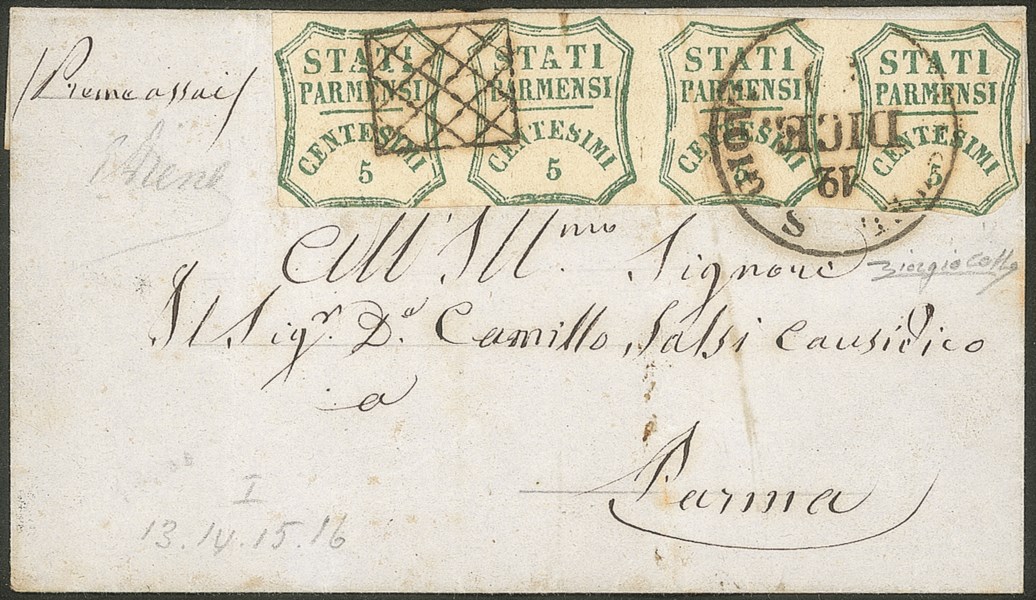 STATI PARMENSI CENTESIMI 5
STATI PARMENSI CENTESIMI 5
STATI PARMENSI CENTESIMI 5
STATI PARMENSI CENTESIMI 5
19
DICE
Preme assai
All' Ill.mo Signore
Il Sigr. Dn Camillo Salsi Causidico
a
Parma
I
13.14.15.16